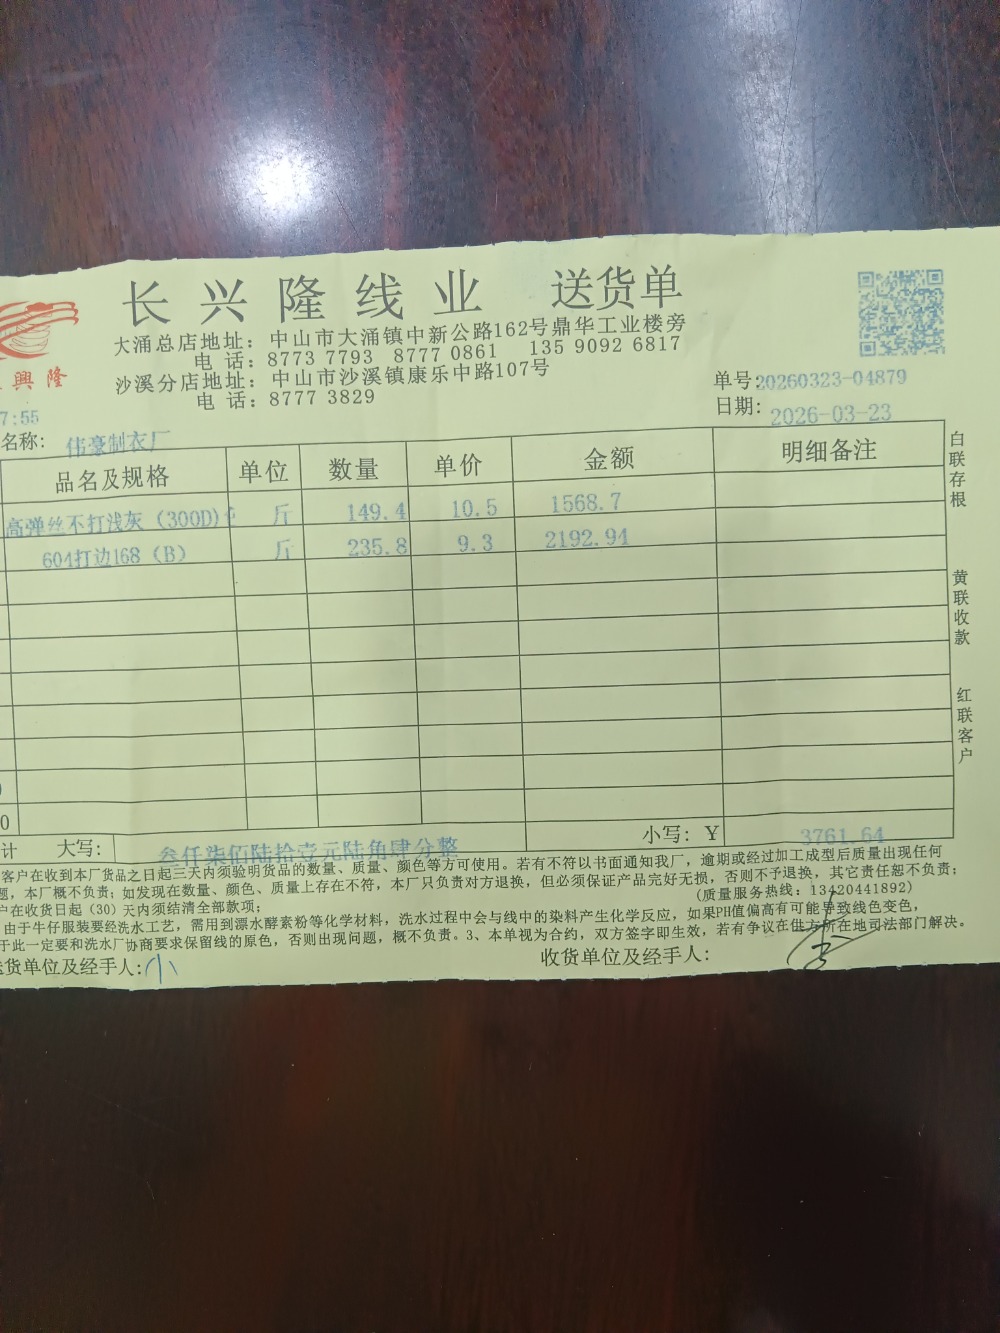 长兴隆线业 送货单
興隆
大涌总店地址：中山市大涌镇中新公路162号鼎华工业楼旁
电 话：8773 7793 8777 0861 135 9092 6817
沙溪分店地址：中山市沙溪镇康乐中路107号
电 话：8777 3829
单号:20260323-04879
7:55
日期: 2026-03-23
名称: 伟豪制衣厂
品名及规格 单位 数量 单价 金额 明细备注
高弹丝不打浅灰（300D) 斤 149.4 10.5 1568.7
604打边168（B） 斤 235.8 9.3 2192.94
白联存根
黄联收款
红联客户
0
计 大写: 叁仟柒佰陆拾壹元陆角肆分整 小写: Y 3761.64
客户在收到本厂货品之日起三天内须验明货品的数量、质量、颜色等方可使用。若有不符以书面通知我厂，逾期或经过加工成型后质量出现任何
题，本厂概不负责；如发现在数量、颜色、质量上存在不符，本厂只负责对方退换，但必须保证产品完好无损，否则不予退换，其它责任恕不负责；
户在收货日起（30）天内须结清全部款项； (质量服务热线：13420441892)
由于牛仔服装要经洗水工艺，需用到漂水酵素粉等化学材料，洗水过程中会与线中的染料产生化学反应，如果PH值偏高有可能导致线色变色，
于此一定要和洗水厂协商要求保留线的原色，否则出现问题，概不负责。3、本单视为合约，双方签字即生效，若有争议在供方所在地司法部门解决。
货单位及经手人: 小 收货单位及经手人: